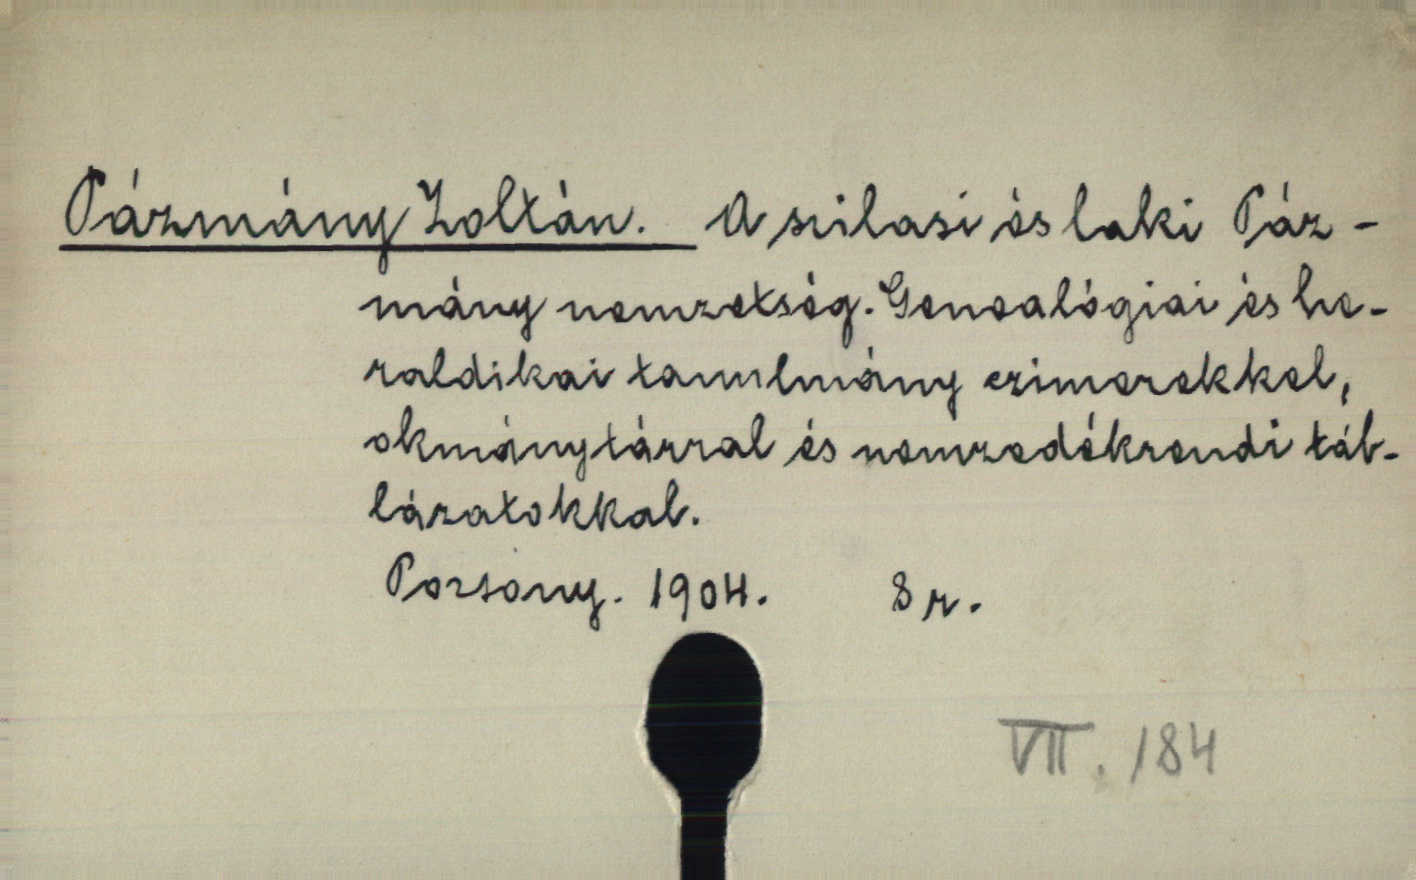 Pázmány Zoltán. A szilasi és laki Páz-
mány nemzetség. Genealógiai és he-
raldikai tanulmány czimerekkel,
okmánytárral és nemzedékrendi táb-
lázatokkal.
Pozsony. 1904. 8 r.
VII. 184